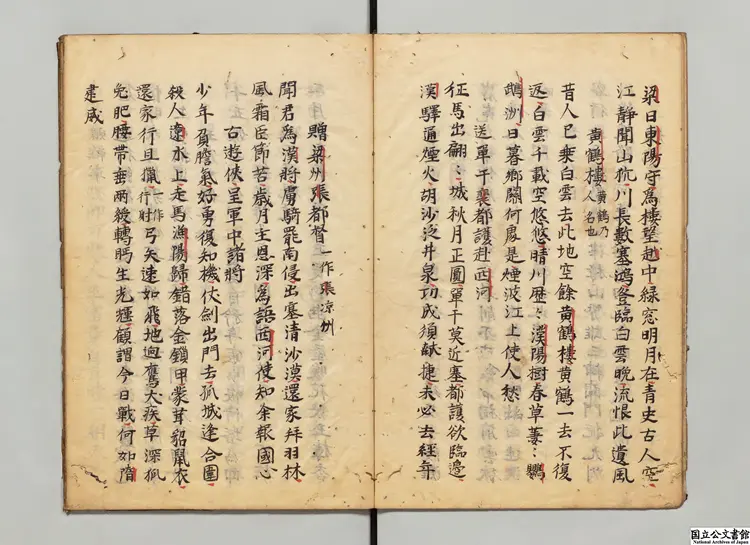 梁日東陽守為樓望越中綠窓明月在青史古人空
江静聞山狖川長數塞鴻登臨白雲晚流恨此遺風
黄鶴樓 黄鶴乃人名也
昔人已乘白雲去此地空餘黄鶴樓黄鶴一去不復
返白雲千載空悠悠晴川歴〻漢陽樹春草萋〻鸚
鵡洲日暮鄉關何處是煙波江上使人愁
送單于裴都護赴西河
征馬去翩〻城秋月正圓單于莫近塞都護欲臨邊
漢驛通煙火胡沙泛井泉功成須献捷未必去經年
贈梁州張都督 一作張凉州
聞君為漢將虜騎罷南侵出塞清沙漠還家拜羽林
風霜臣節苦歳月主恩深為語西河使知余報國心
古遊侠呈軍中諸將
少年負膽氣好勇復知機仗劍出門去孤城逢合圍
殺人遼水上走馬漁陽歸錯落金鎖甲蒙茸貂鼠衣
還家行且獵 一作行射 弓矢速如飛地迥鷹犬疾草深狐
兔肥腰帶垂兩綬轉眄生光輝顧謂今日戰何如隨
建威
国立公文書館
National Archives of Japan